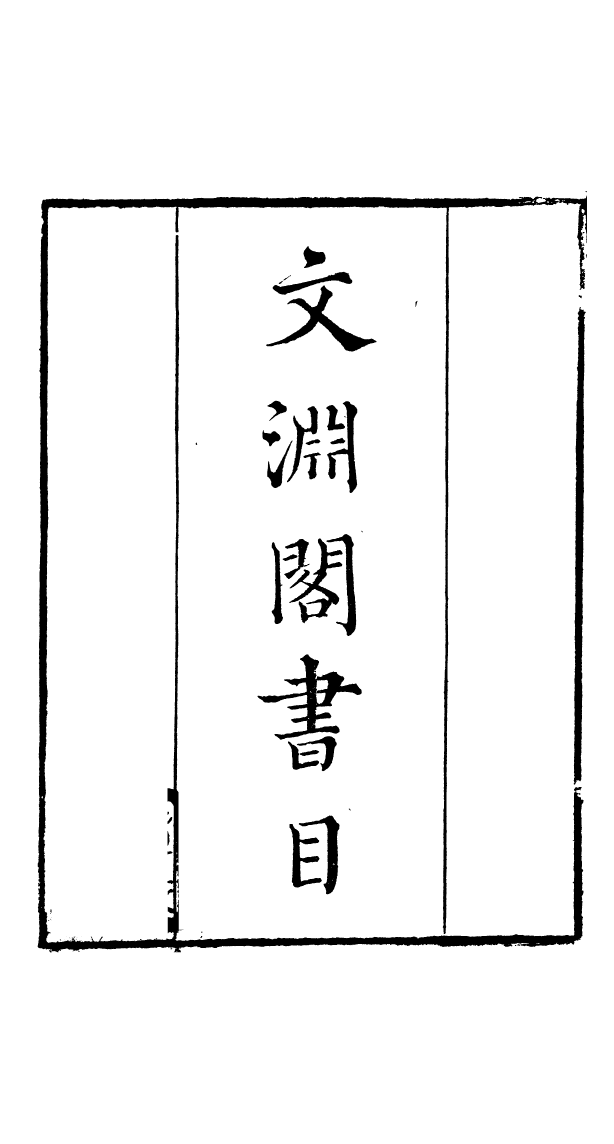 文淵閣書目